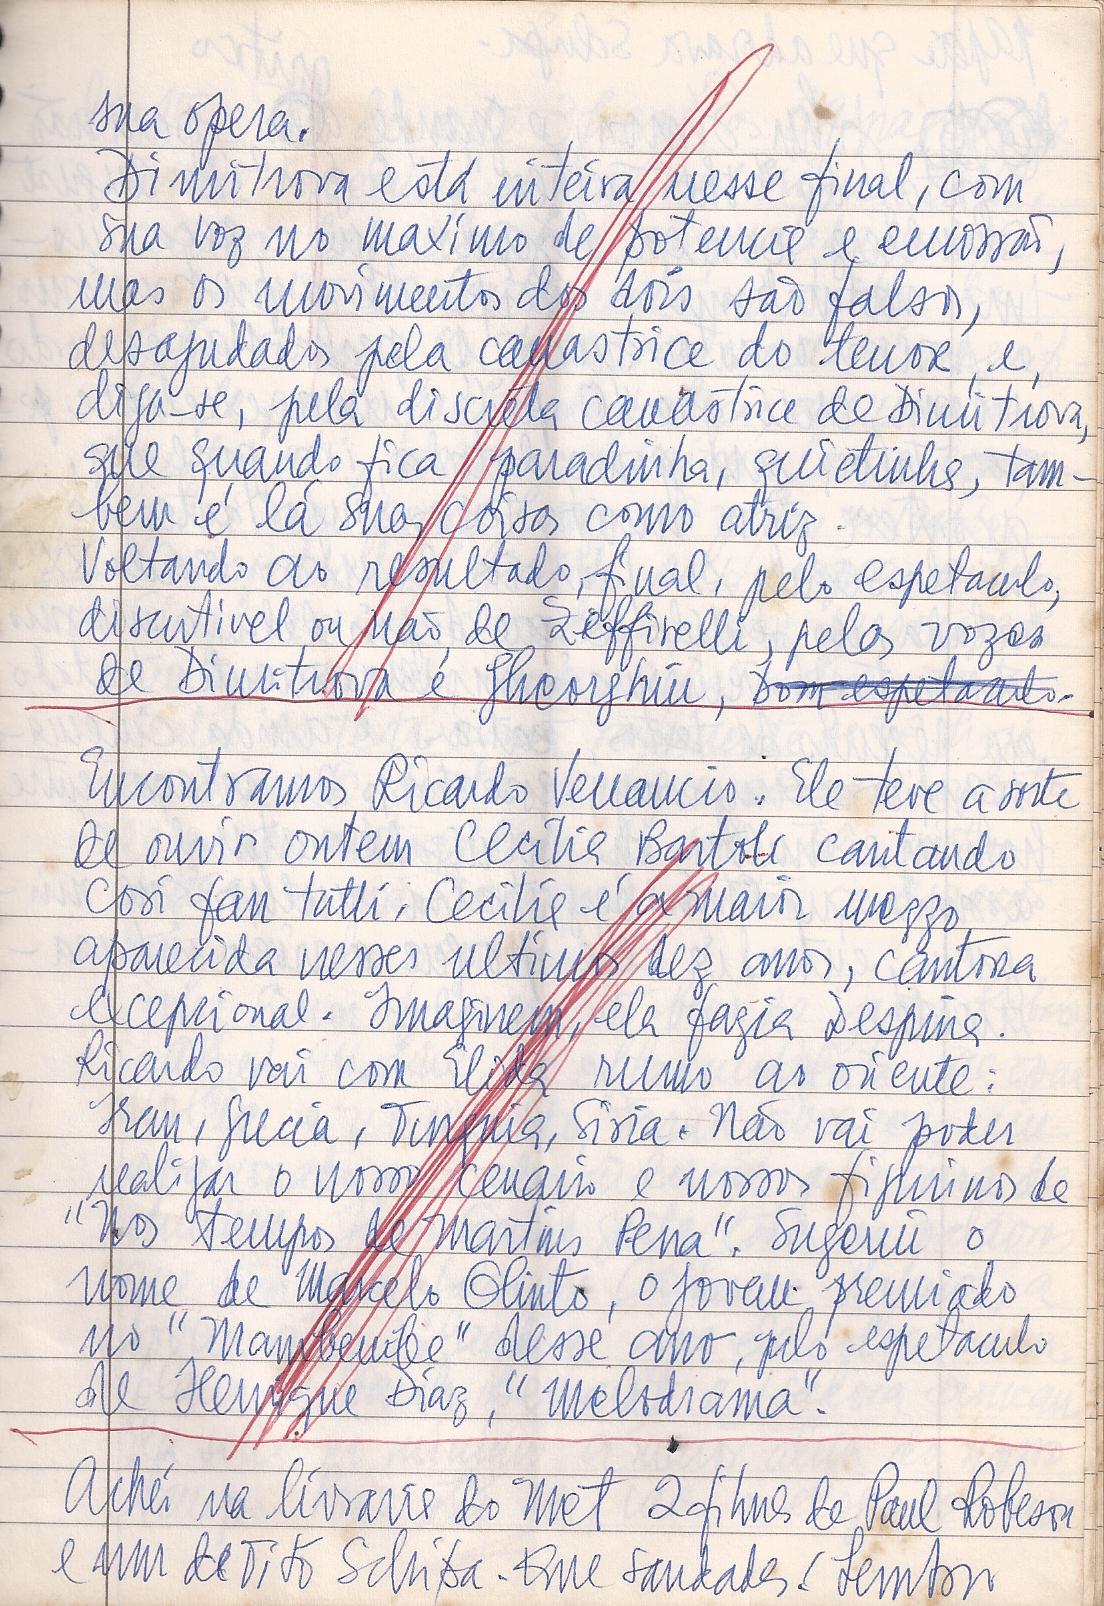 sua opera.
Dimitrova está inteira nesse final, com
sua voz no maximo de potencia e emossão,
mas os movimentos dos dois são falsos,
desajudados pela canastrice do tenor, e,
diga-se, pela discreta canastrice de Dimitrova,
que quando fica paradinha, quietinha, tam-
bem é lá suas coisas como atriz.
Voltando ao resultado, final, pelo espetaculo,
discutivel ou não, de Zeffirelli, pelas vozes
de Dimitrova e Gheorghiu, bom espetaculo.
Encontramos Ricardo Venancio. Ele teve a sorte
de ouvir ontem Cecilia Bartoli cantando
Cosi fan tutti. Cecilia é a maior mezzo
aparecida nesses ultimos dez anos, cantora
excepcional. Imaginem, ela fazia Despina.
Ricardo vai com Elida rumo ao oriente:
Iran, Grecia, Turquia, Siria. Não vai poder
realizar o nosso cenario e nossos figurinos de
"Nos tempos de Martins Pena". Sugeriu o
nome de Marcelo Olinto, o jovem premiado
no "Mambembe" desse ano, pelo espetaculo
de Henrique Diaz, "Melodrama".
Achei na livraria do Met 2 filmes de Paul Robeson
e um de Tito Schipa. Que saudades! Lembro